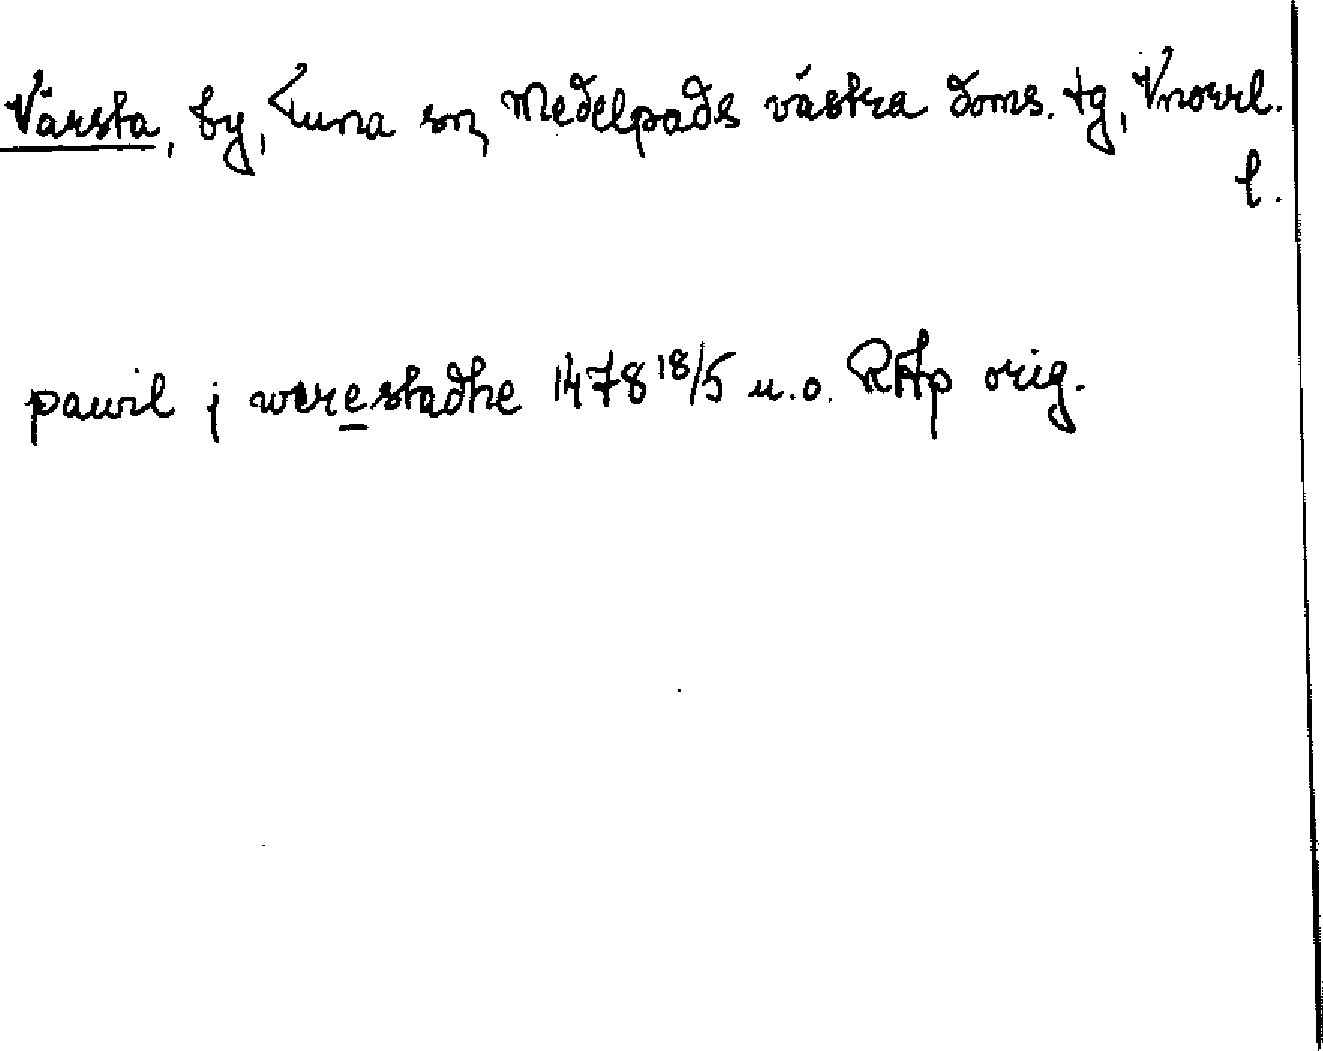 Värsta, by, Tuna sn, Medelpads västra doms. tg, Vnorrl.
l.
pauil j werestadhe 1478 18/5 u.o. RAp orig.